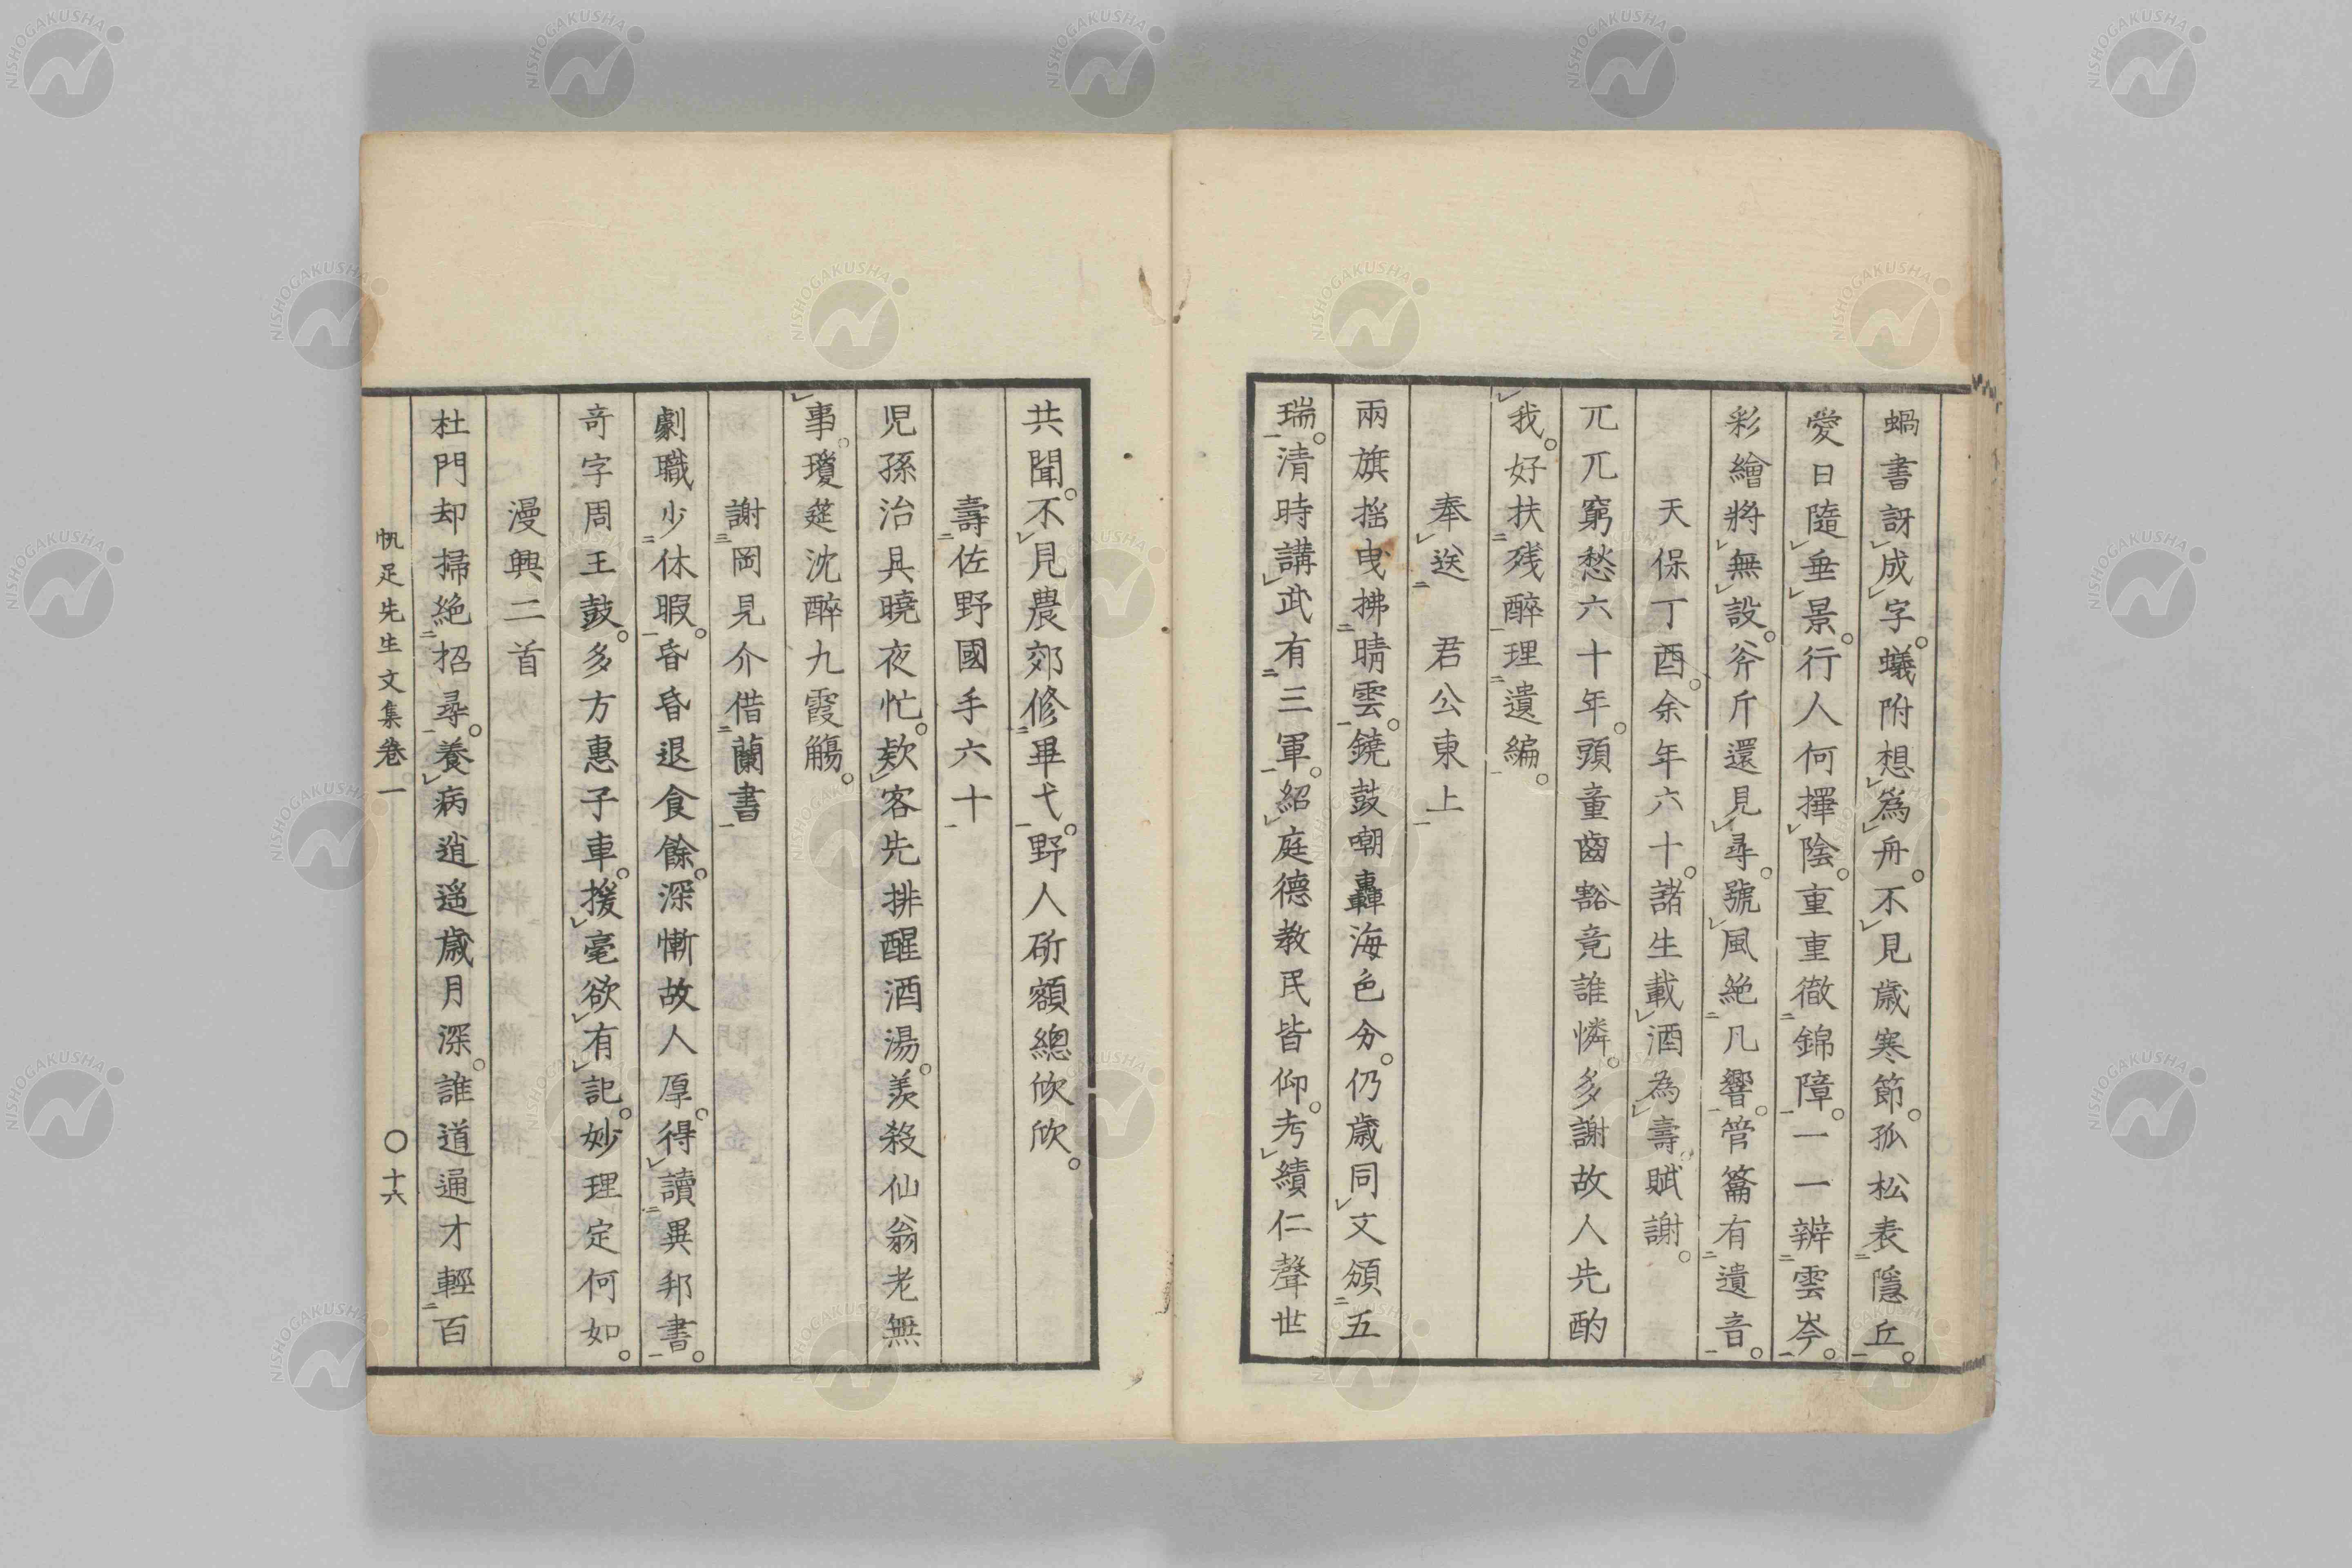 蝸書訝成字。蟻附想為舟。不見歳寒節。孤松表隱丘。
愛日隨垂景。行人何擇陰。重重徹錦障。一一辨雲岑。
彩繪將無設。斧斤還見尋。號風絶凡響。管籥有遺音。
天保丁酉。余年六十。諸生載酒為壽。賦謝。
兀兀窮愁六十年。頭童齒豁竟誰憐。多謝故人先酌
我。好扶残醉理遺編。
奉送 君公東上
兩旗搖曳拂晴雲。鐃鼓嘲轟海色分。仍歳同文頒五
瑞。清時講武有三軍。紹庭德教民皆仰。考績仁聲世
共聞。不見農郊修畢弋。野人斫額總欣欣。
壽佐野國手六十
児孫治具曉夜忙。欵客先排醒酒湯。羨殺仙翁老無
事。瓊筵沈醉九霞觴。
謝岡見介借蘭書
劇職少休暇。昏昏退食餘。深慚故人厚。得讀異邦書。
竒字周王鼓。多方惠子車。援毫欲有記。妙理定何如。
漫興二首
杜門却掃絶招尋。養病逍遥歳月深。誰道通才輕百
帆足先生文集卷一 〇十六
NISHOGAKUSHA